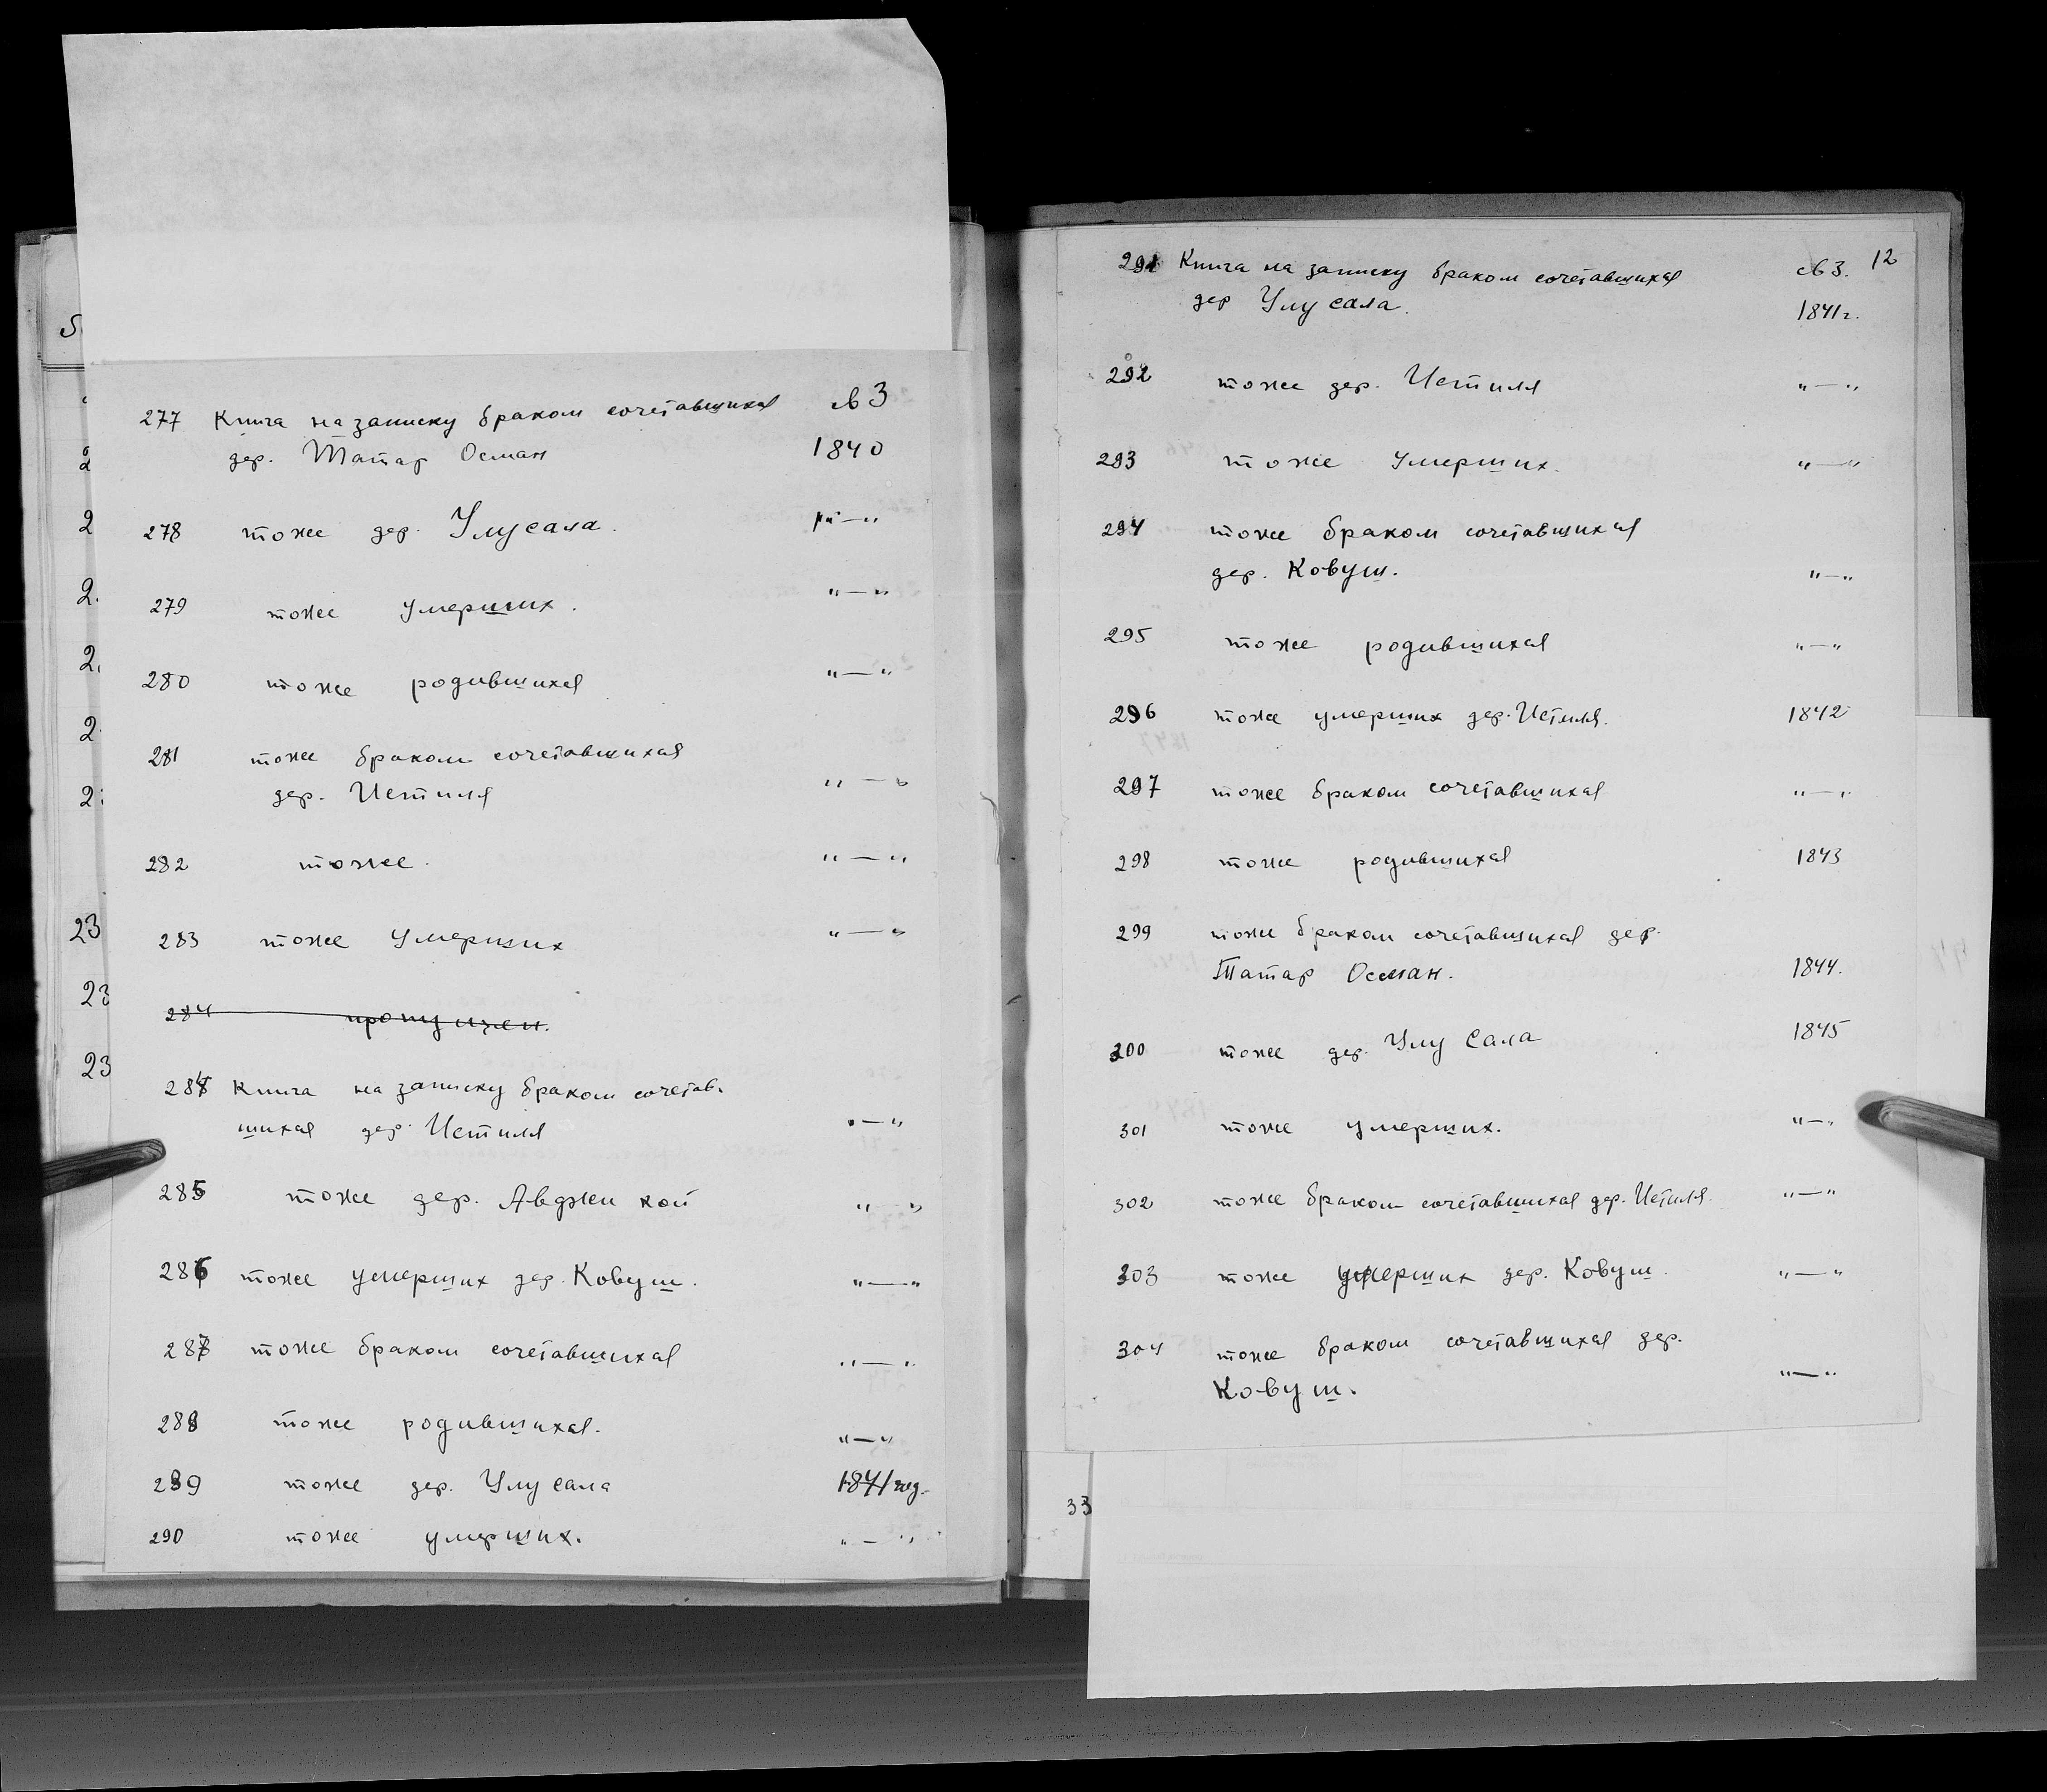 277 Книга на записку браком сочетавшихся св 3
дер. Татар Осман 1840
278 тоже дер. Улусала. "—"
279 тоже умерших. "—"
280 тоже родившихся "—"
281 тоже браком сочетавшихся
дер. Истиля "—"
282 тоже. "—"
283 тоже умерших "—"
284 пропущен.
284 Книга на записку браком сочетав-
шихся дер. Истиля "—"
285 тоже дер. Авджи кой "—"
286 тоже умерших дер. Ковуш. "—"
287 тоже браком сочетавшихся "—"
288 тоже родившихся. "—"
289 тоже дер. Улу сала 1841 год.
290 тоже умерших. "—"
12
291 Книга на записку браком сочетавшихся св 3.
дер Улу сала. 1841г.
292 тоже дер. Истиля "—"
293 тоже умерших. "—"
294 тоже браком сочетавшихся
дер. Ковуш. "—"
295 тоже родившихся "—"
296 тоже умерших дер. Истиля. 1842
297 тоже браком сочетавшихся "—"
298 тоже родившихся 1843
299 тоже браком сочетавшихся дер.
Татар Осман. 1844.
300 тоже дер. Улу Сала 1845
301 тоже умерших. "—"
302 тоже браком сочетавшихся дер. Истиля. "—"
303 тоже умерших дер. Ковуш. "—"
304 тоже браком сочетавшихся дер.
Ковуш. "—"
33